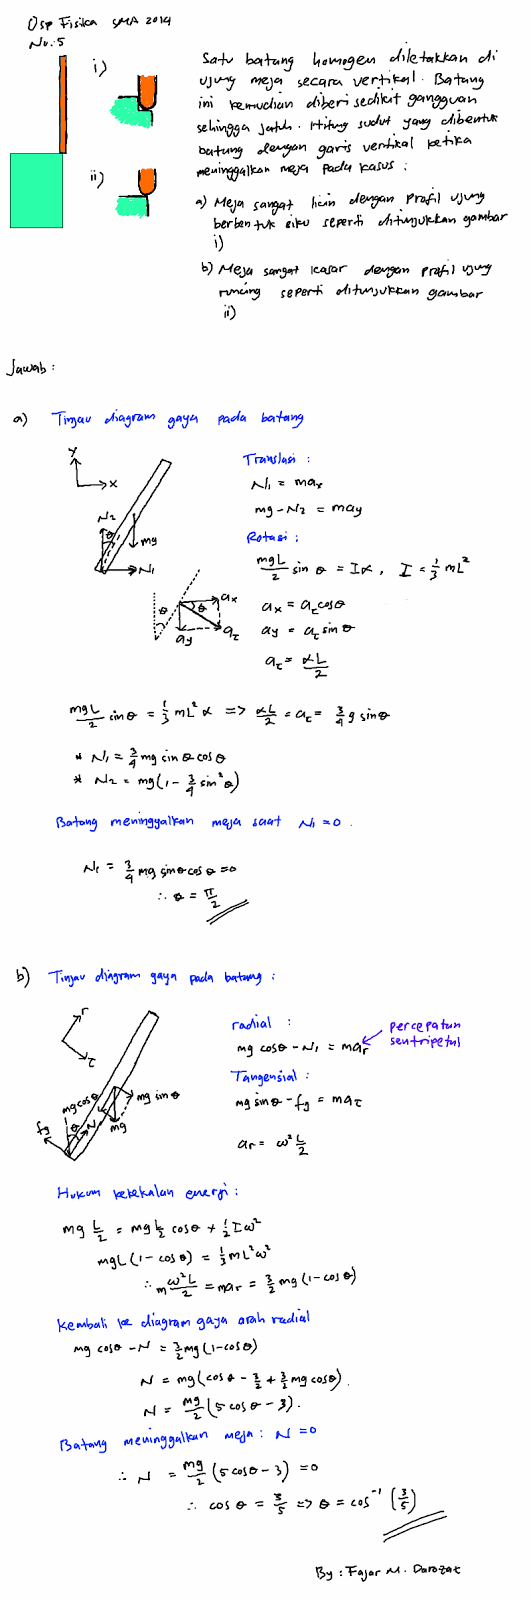 Osp Fisika SMA 2014
No. 5
i)
ii)
Satu batang homogen diletakkan di
ujung meja secara vertikal. Batang
ini kemudian diberi sedikit gangguan
sehingga jatuh. Hitung sudut yang dibentuk
batang dengan garis vertikal ketika
meninggalkan meja pada kasus :
a) Meja sangat licin dengan profil ujung
berbentuk siku seperti ditunjukkan gambar
i)
b) Meja sangat kasar dengan profil ujung
runcing seperti ditunjukkan gambar
ii)
Jawab :
a) Tinjau diagram gaya pada batang
y
x
N₂
θ
mg
N₁
Translasi :
N₁ = maₓ
mg - N₂ = may
Rotasi :
mgL/2 sin θ = Iα , I = 1/3 mL²
θ
θ
aₓ
ay
aτ
aₓ = aτ cosθ
ay = aτ sin θ
aτ = αL/2
mgL/2 sinθ = 1/3 mL² α => αL/2 = aτ = 3/4 g sinθ
* N₁ = 3/4 mg sin θ cos θ
* N₂ = mg(1 - 3/4 sin² θ)
Batang meninggalkan meja saat N₁ = 0.
N₁ = 3/4 mg sinθ cos θ = 0
∴ θ = π/2
b) Tinjau diagram gaya pada batang :
r
τ
mg cosθ
mg sin θ
fg
θ
N
mg
radial :
mg cosθ - N₁ = mar
percepatan
sentripetal
Tangensial :
mg sinθ - fg = maτ
ar = ω² L/2
Hukum kekekalan energi :
mg L/2 = mg L/2 cosθ + 1/2 Iω²
mgL (1 - cos θ) = 1/3 mL²ω²
∴ m ω²L/2 = mar = 3/2 mg (1 - cos θ)
Kembali ke diagram gaya arah radial
mg cosθ - N = 3/2 mg (1 - cosθ)
N = mg (cosθ - 3/2 + 3/2 mg cosθ).
N = mg/2 (5 cosθ - 3).
Batang meninggalkan meja : N = 0
∴ N = mg/2 (5 cosθ - 3) = 0
∴ cos θ = 3/5 => θ = cos⁻¹ (3/5)
By : Fajar M. Darozat